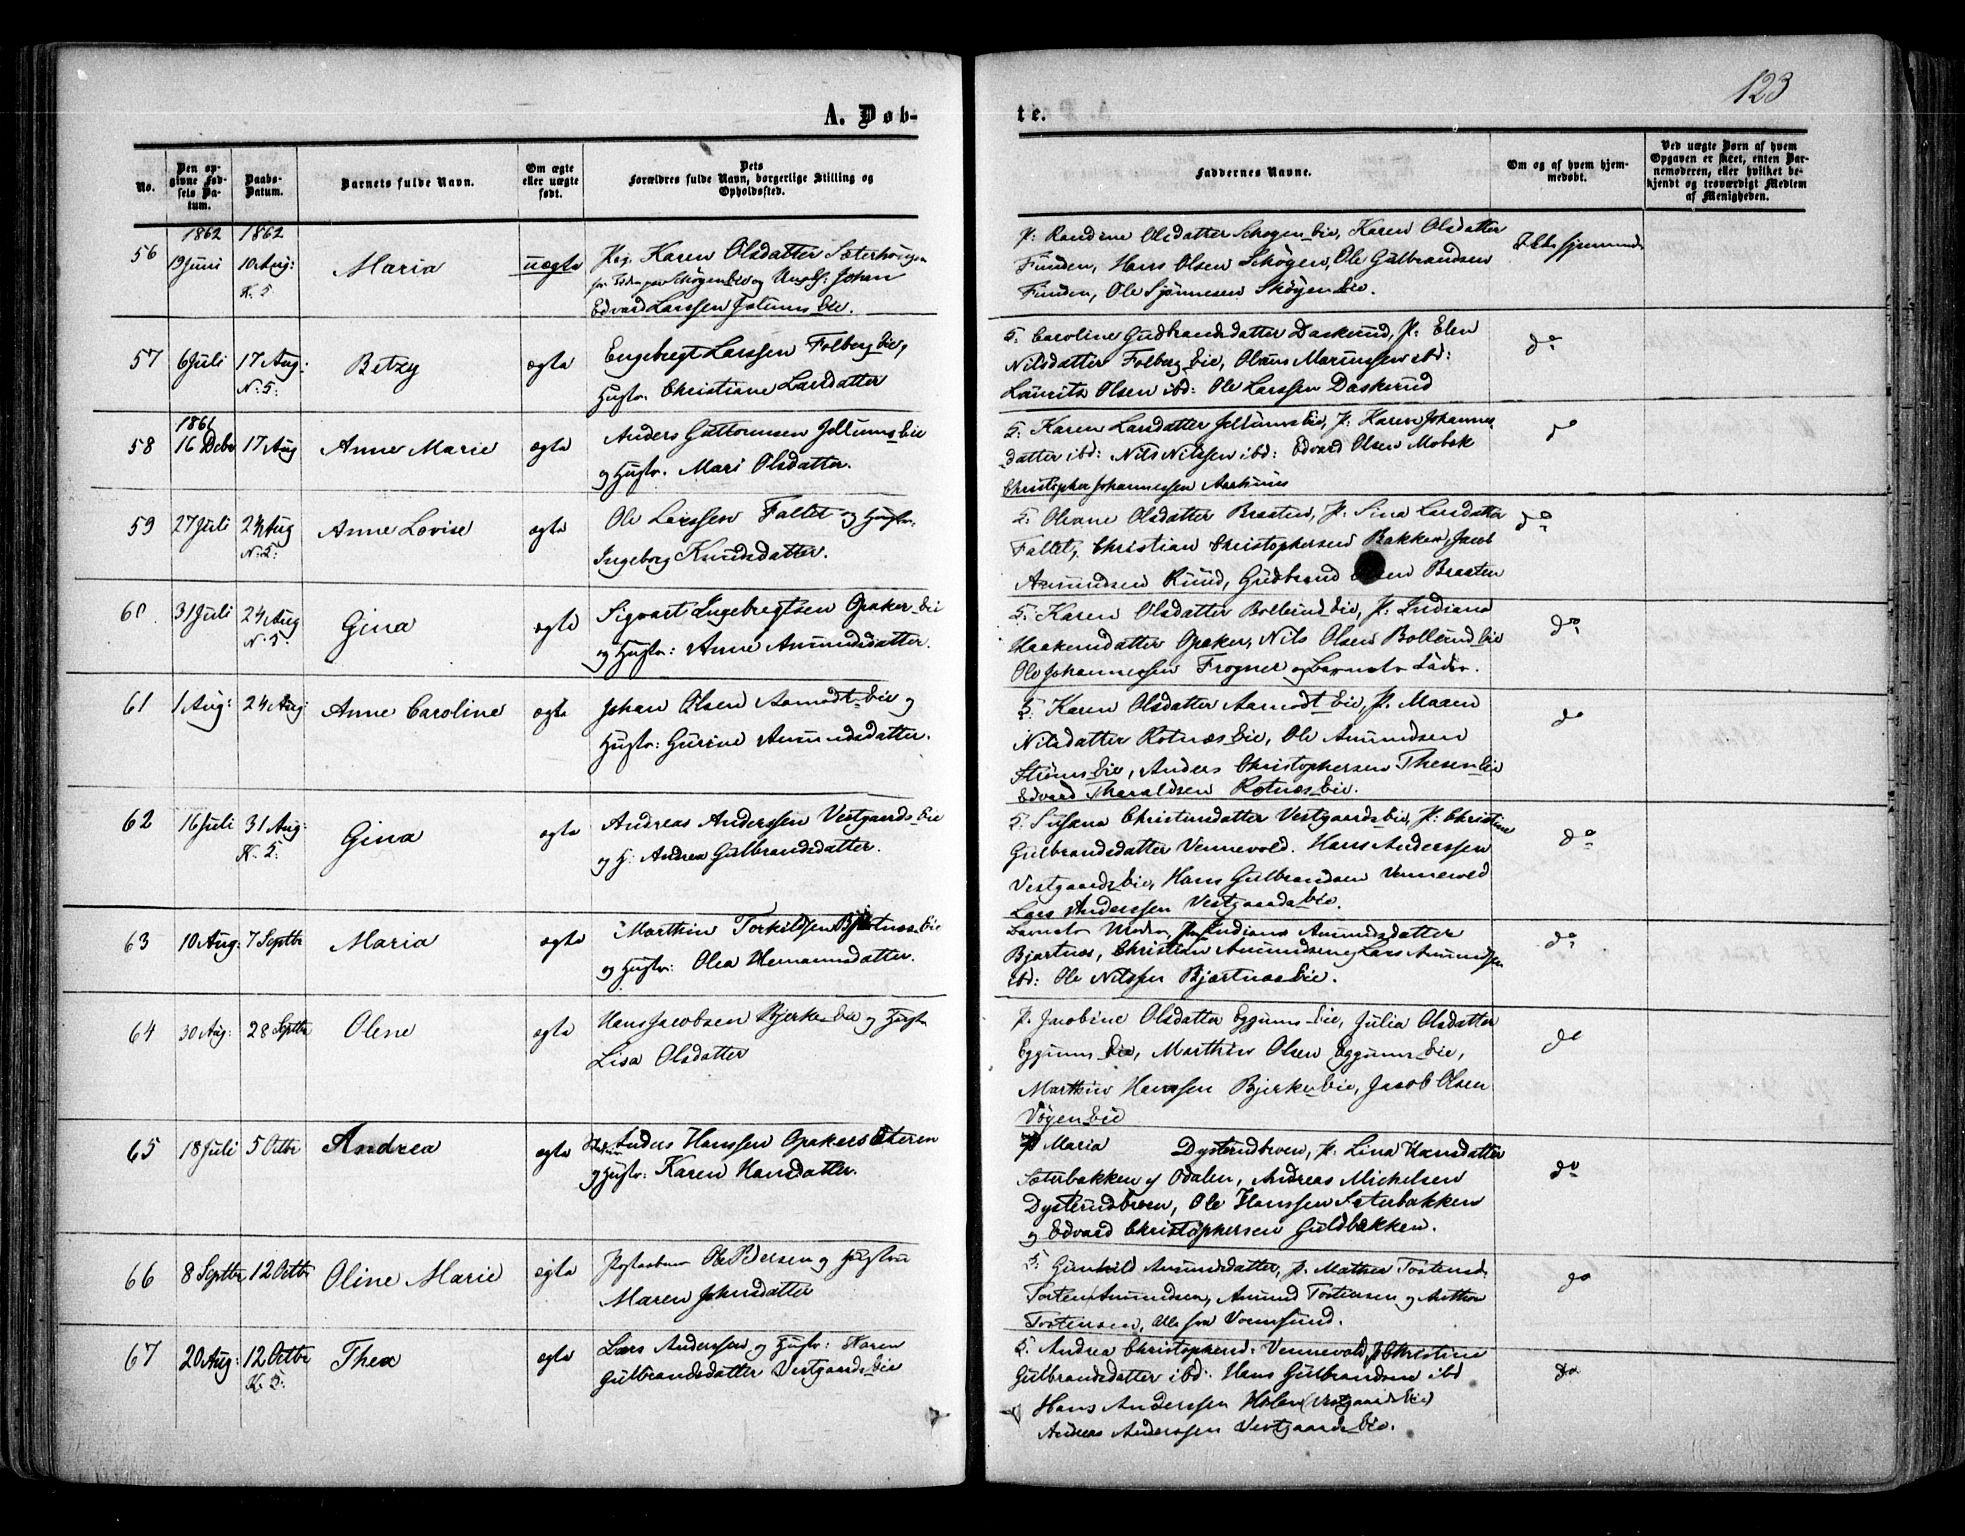 123
A. Døb-
te.
No.
Den op-
givne Fød-
sels Da-
tum.
Daabs-
Datum.
Barnets fulde Navn.
Om ægte
eller uægte
født.
Dets
Forældres fulde Navn, borgerlige Stilling og
Opholdssted.
Faddernes Navne.
Om og af hvem hjem-
medøbt.
Ved uægte Børn af hvem
Opgaven er skeet, enten Bar-
nemoderen, eller hvilket be-
kjendt og troværdigt Medlem
af Menigheden.
1862 1862
56 19 Juni 10 Aug: Maria uægte Pig. Karen Olsdatter Sæterhaugen
K. 5. og Ungk: Johan
Edvard Larssen Jølums Eie.
P: Randine Olsdatter Schøgen Eie, Karen Olsdatter
Funden, Hans Olsen Skøgen, Ole Gulbrandsen
Funden, Ole Skøyen Eie.
57 6 Juli 17 Aug: Betzy ægte Engebregt Larssen Folberg Eie,
N: 5: Hustr. Christiane Larsdatter
G: Caroline Gudbrandsdatter Daskerud, P: Elen
Nilsdatter Folberg Eie, Olaus ibd:
Lauritz Olsen ibd: Ole Larssen Daskerud
do
1861
58 16 Debr 17 Aug Anne Marie ægte Anders Guttormsen Jølums Eie
og Hustr. Mari Olsdatter.
G: Karen Larsdatter Jøllums Eie, P: Karen Johannes
datter ibd: Nils Nilssen ibd: Edvard Olsen Mobæk
Christopher Johannessen
do
59 27 Juli 24 Aug Anne Lovise ægte Ole Larssen Fallet og Hustr:
N: 5: Ingeborg Knudsdatter.
G: Oleane Olsdatter Braaten, P: Sina Larsdatter
Fallet, Christian Christophersen Bakken, Jacob
Amundsen Ruud, Gudbrand Braaten
do
60. 31 Juli 24 Aug Gina ægte Sigvart Ingebregtsen Opaker Eie
N: 5: og Hustr: Anne Amundsdatter.
G: Karen Olsdatter Bollerud Eie, P: Indiana
Haakensdatter Opaker, Nils Olsen Bollerud Eie
Ole Johannessen Frogner og Barnets Fader.
do
61 1 Aug: 24 Aug: Anne Caroline ægte Johan Olsen Aamodt Eie og
Hustr: Gurine Amundsdatter.
G: Karen Olsdatter Aamodt Eie, P. Maren
Nilsdatter Rotnæs Eie, Ole Amundsen
Strøms Eie, Anders Christophersen Thesen Eie
Edvard Tharaldsen Rotnæs Eie.
do
62 16 Juli 31 Aug: Gina ægte Andreas Anderssen Vestgaards Eie
K. 5: og H: Andrea Gulbrandsdatter.
G: Susana Christiansdatter Vestgaards Eie, P: Christine
Gulbrandsdatter Vennevold. Hans Anderssen
Vestgaards Eie, Hans Gulbrandsen Vennevold
Lars Anderssen Vestgaards Eie.
do
63 10 Aug: 7 Septbr Maria ægte Marthin Torkildsen Bjørtnæs Eie
og Hustr: Olea Hemannsdatter.
Barnets Moder, Pig. Indiana Amundsdatter
Bjørtnæs, Christian Amundsen og Lars Amundsen
ibd: Ole Nilssen Bjørtnæs Eie.
do
64 30 Aug: 28 Septbr Oline ægte Hans Jacobsen Bjerke Eie og Hustr
Lisa Olsdatter
P. Jacobine Olsdatter Eggums Eie, Julia Olsdatter
Eggums Eie, Marthin Olsen Eggums Eie,
Marthin Hanssen Bjerke Eie, Jacob Olsen
Vøyen Eie
do
65 18 Juli 5 Octbr Andrea ægte Anders Hanssen Opakers Eteren
og Hustr: Karen Hansdatter.
P Maria Dysterudbroen, P. Lina Hansdatter
Sæterbakken af Odalen, Andreas Michelsen
Dysterudbroen, Ole Hanssen Sæterbakken
og Edvard Christophersen Guldbækken.
do
66 8 Septbr 12 Octbr Oline Marie ægte Ole Pedersen og Hustru
Maren Johnsdatter
G: Gunhild Amundsdatter, P. Mathea Tostensd:
Tosten Amundsen, Amund Tostensen og Anthon
Tostensen, alle fra Vormsund.
do
67 20 Aug: 12 Octbr Thea ægte Lars Anderssen og Hustr: Karen
K: 5: Gulbrandsdatter Vestgaards Eie
G: Andrea Christophersd: Vennevold, P Christine
Gulbrandsdatter ibd: Hans Gulbrandsen ibd
Hans Anderssen Holen (Vestgaards Eie)
Andreas Anderssen Vestgaards Eie.
do